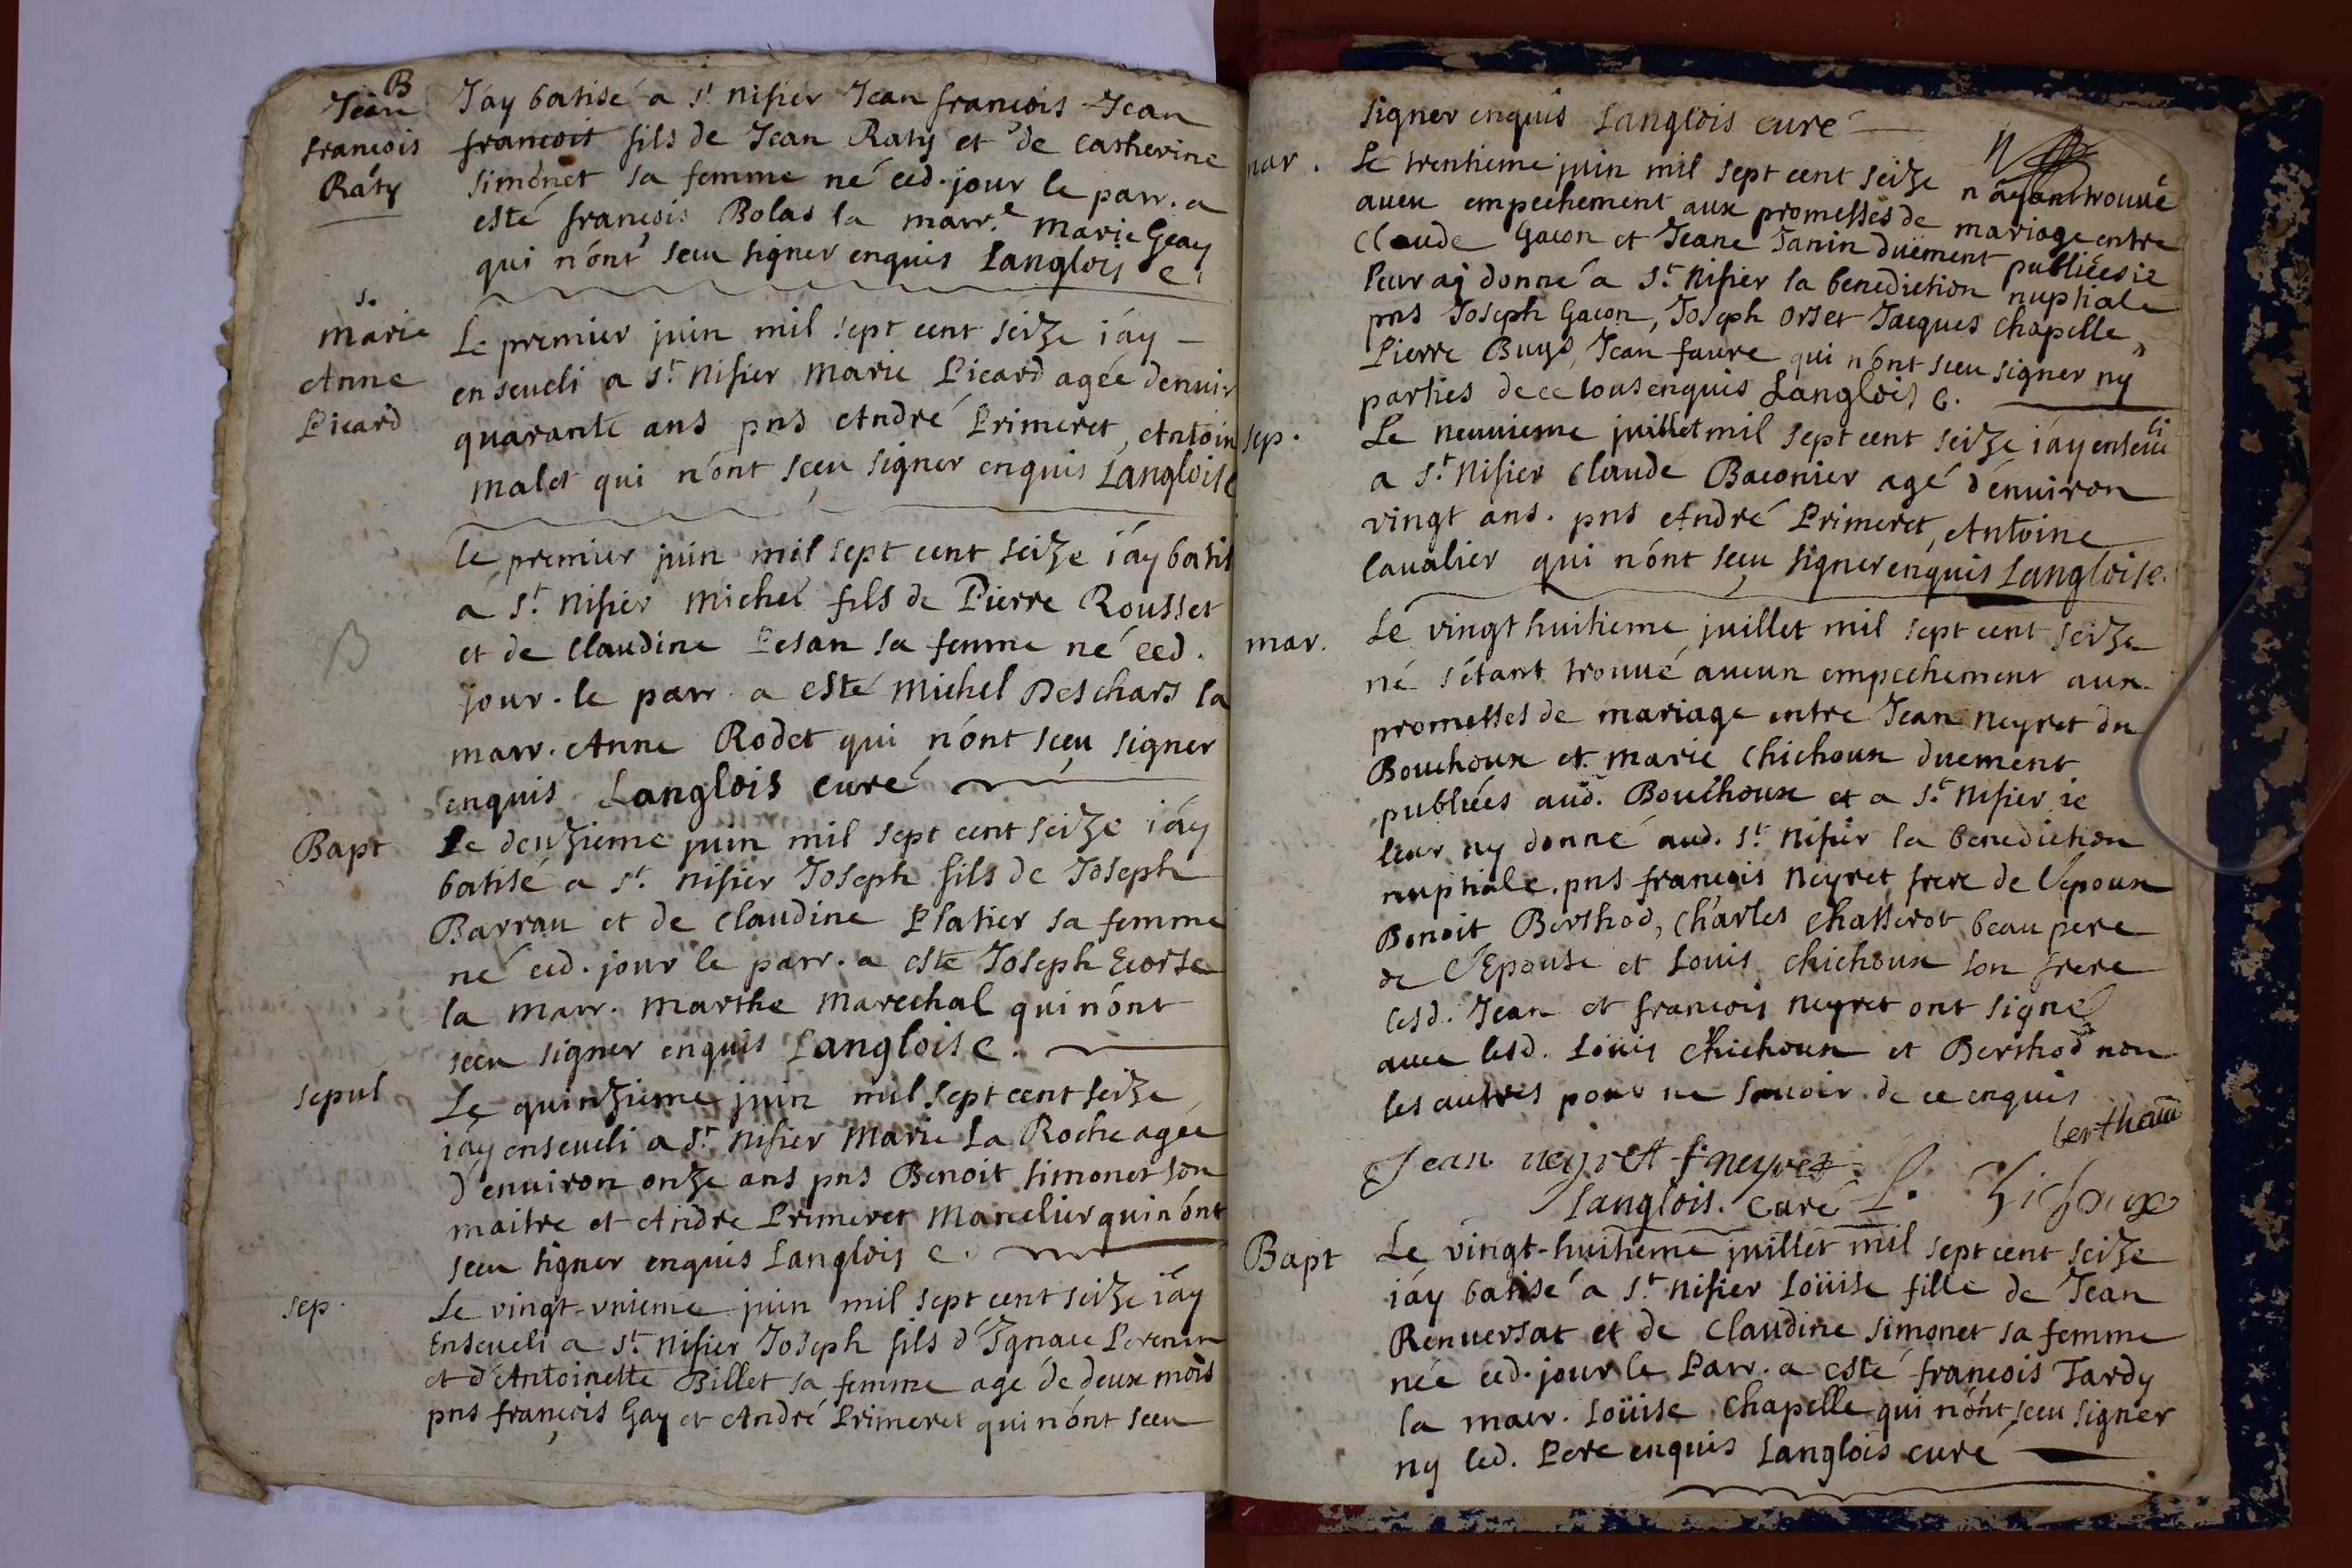 B
Jean
francois
Raty
J'ay batisé a St. nisier Jean francois Jean
francois fils de Jean Raty et de catherine
simonet sa femme né ced. jour le parr. a
esté francois Bolas la marr.e marie Geay
qui n'ont sceu signer enquis Langlois c.
s.
marie
Anne
Picard
Le premier juin mil sept cent seize i'ay
enseueli a St. nisier marie Picard agée denuir
quarante ans pns André Primeret, Antoin
malet qui n'ont sceu signer enquis Langlois c
Le premier juin mil sept cent seize i'ay batis
B
a St. nisier michel fils de Pierre Rousset
et de claudine Pesan sa femme né ced.
jour. le parr. a esté michel Deschars la
marr. Anne Rodet qui n'ont sceu signer
enquis Langlois curé
Bapt
Le deuzieme juin mil sept cent seize i'ay
batisé a St. nisier Joseph fils de Joseph
Barrau et de claudine Platier sa femme
né ced. jour le parr. a esté Joseph Ecorse
la marr. marthe marechal qui n'ont
sceu signer enquis Langlois c.
sepul
Le quinzieme juin mil sept cent seize
i'ay enseueli a St. nisier marie La Roche agée
d'enuiron onze ans pns Benoit simonet son
maitre et Andre Primeret Mancelier qui n'ont
sceu signer enquis Langlois c.
sep.
Le vingt-vnieme juin mil sept cent seize i'ay
Enseueli a St. nisier Joseph fils d'Ignace
et d'Antoinette Billet sa femme agé de deux mois
pns françois Gay et André Primeret qui n'ont sceu
signer enquis Langlois curé
mar.
Le trentieme juin mil sept cent seize n'ayant trouué
aucu empechement aux promesses de mariage entre
Claude Gacon et Jeane Janin duëment publiées ie
leur aj donné a St. Nisier la benediction nuptiale
pns Joseph Gacon, Joseph Orset Jacques chapelle,
Pierre Buys, Jean faure qui n'ont sceu signer ny
parties de ce tous enquis Langlois c.
sep.
Le neuuieme juillet mil sept cent seize i'ay enseueli
a St. Nisier Claude Baconier agé d'enuiron
vingt ans. pns André Primeret, Antoine
Caualier qui n'ont sceu signer enquis Langlois c.
mar.
Le vingt huitieme juillet mil sept cent seize
né s'étant trouué aucun empechement aux
promesses de mariage entre Jean neyret du
Bouchoux et marie Chichoux duement
publiées aud. Bouchoux et a St. Nisier ie
leur ay donné aud. St. Nisier la benediction
nuptiale. pns francois Neyret frere de l'époux
Benoit Berthod, Charles Chasserot beau pere
de l'Epouse et Louis chichoux son frere
lesd. Jean et francois neyret ont signé
auec lesd. Loüis chichoux et Berthod non
les autres pour ne sauoir de ce enquis
Jean neyret f neyret
Langlois. Curé
Bapt
Le vingt-huitieme juillet mil sept cent seize
i'ay batisé a St. Nisier Loüise fille de Jean
Renuersat et de Claudine simonet sa femme
née ced. jour le Parr. a esté francois Tardy
la marr. Loüise Chapelle qui n'ont sceu signer
ny led. Pere enquis Langlois curé